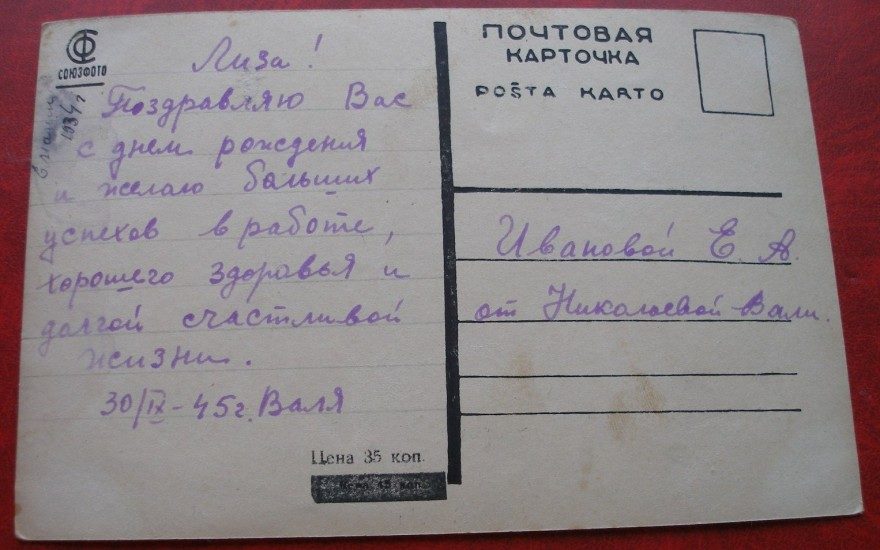 СОЮЗФОТО
Лиза!
Поздравляю Вас
с днем рождения
и желаю больших
успехов в работе,
хорошего здоровья и
долгой счастливой
жизни.
30/IX-45г. Валя
Цена 35 коп.
ПОЧТОВАЯ
КАРТОЧКА
POŜTA KARTO
Ивановой Е. А.
от Николаевой Вали.